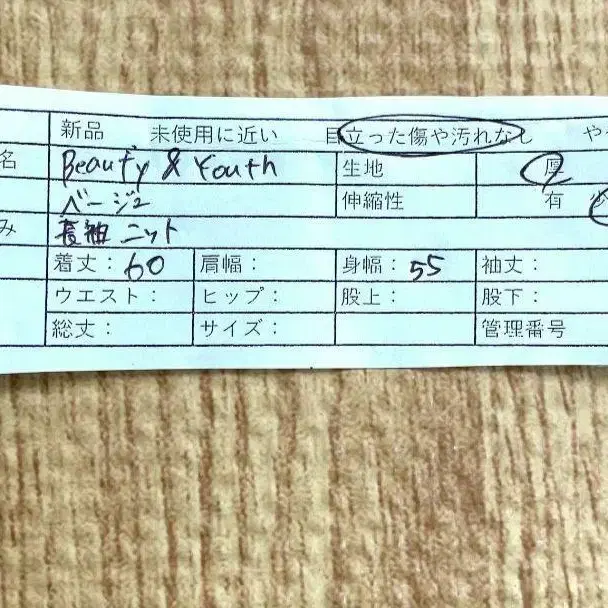 新品 未使用に近い 目立った傷や汚れなし や
名 Beauty & Youth 生地 厚
ベージュ 伸縮性 有
み 長袖 ニット
着丈：60 肩幅： 身幅：55 袖丈：
ウエスト： ヒップ： 股上： 股下：
総丈： サイズ： 管理番号